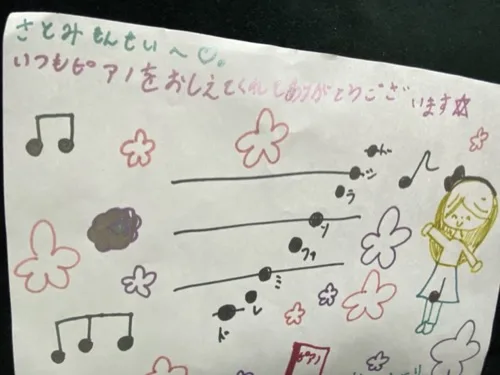 さとみせんせい〜♡。
いつもピアノをおしえてくれてありがとうござ
います
ド
シ
ラ
ソ
ファ
ミ
レ
ド
ピアノ